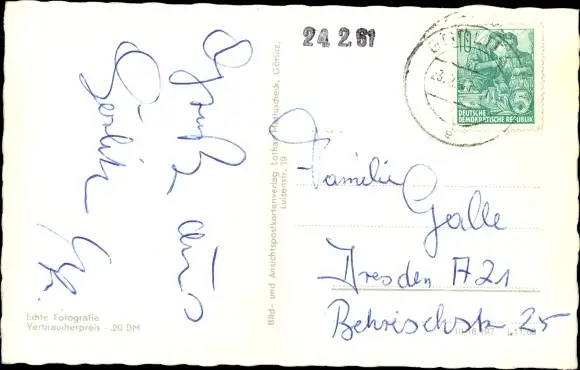 Gruß aus
Görlitz
Echte Fotografie
Verbraucherpreis -.20 DM
Bild- und Ansichtspostkartenverlag Lothar Hartuscheck, Görlitz,
Luisenstr. 19
24. 2. 61
23.
5
DEUTSCHE
DEMOKRATISCHE REPUBLIK
Familie
Galle
Dresden A21
Behrischstr 25